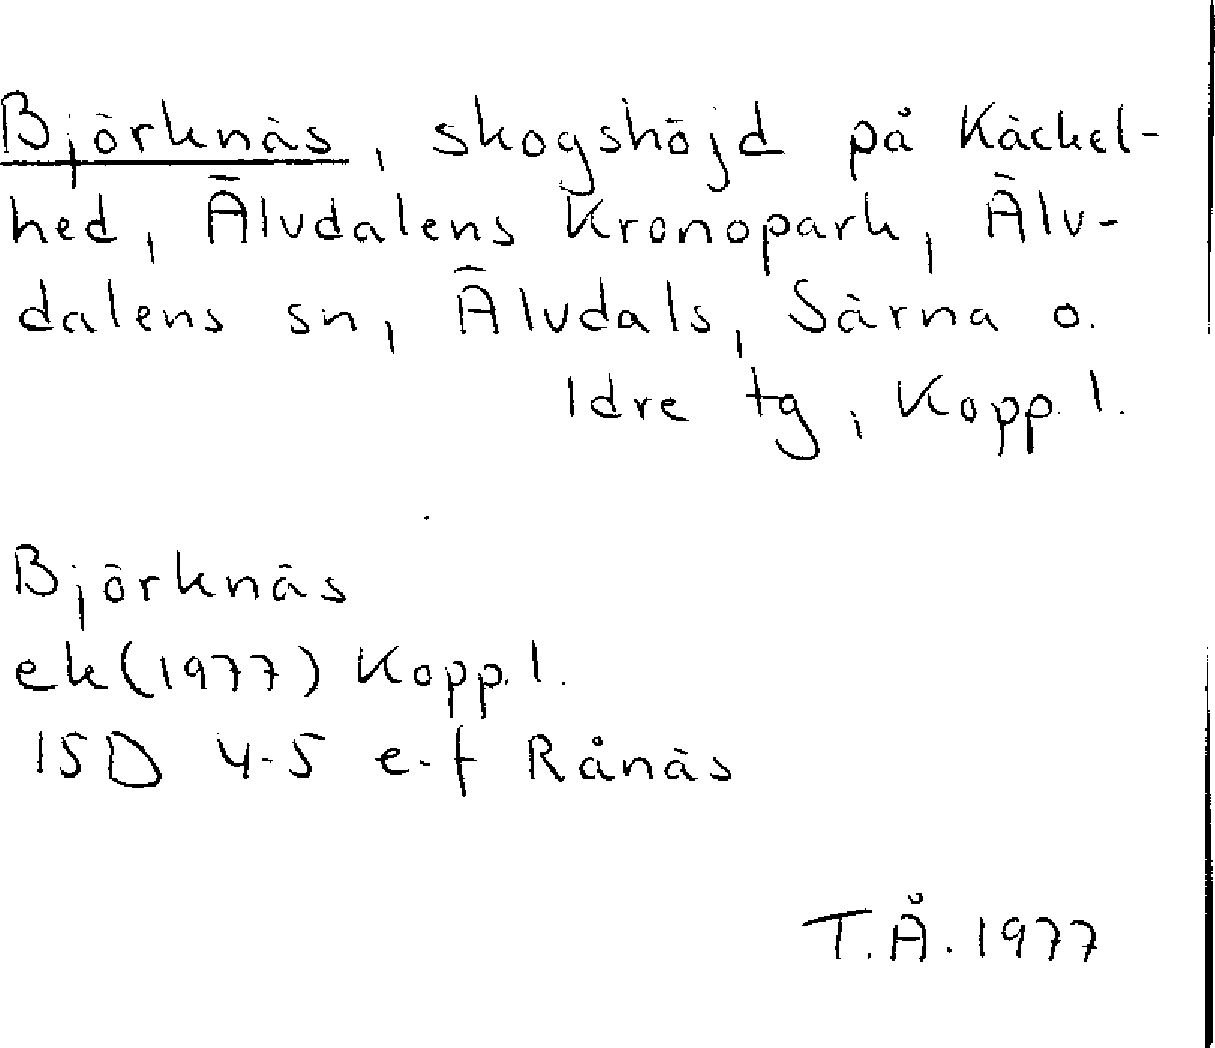 Björknäs, skogshöjd på Käckel-
hed, Älvdalens Kronopark, Älv-
dalens sn, Älvdals, Särna o.
Idre tg, Kopp. l.
Björknäs
ek (1977) Kopp. l.
15D 4-5 e-f Rånäs
T.Å. 1977